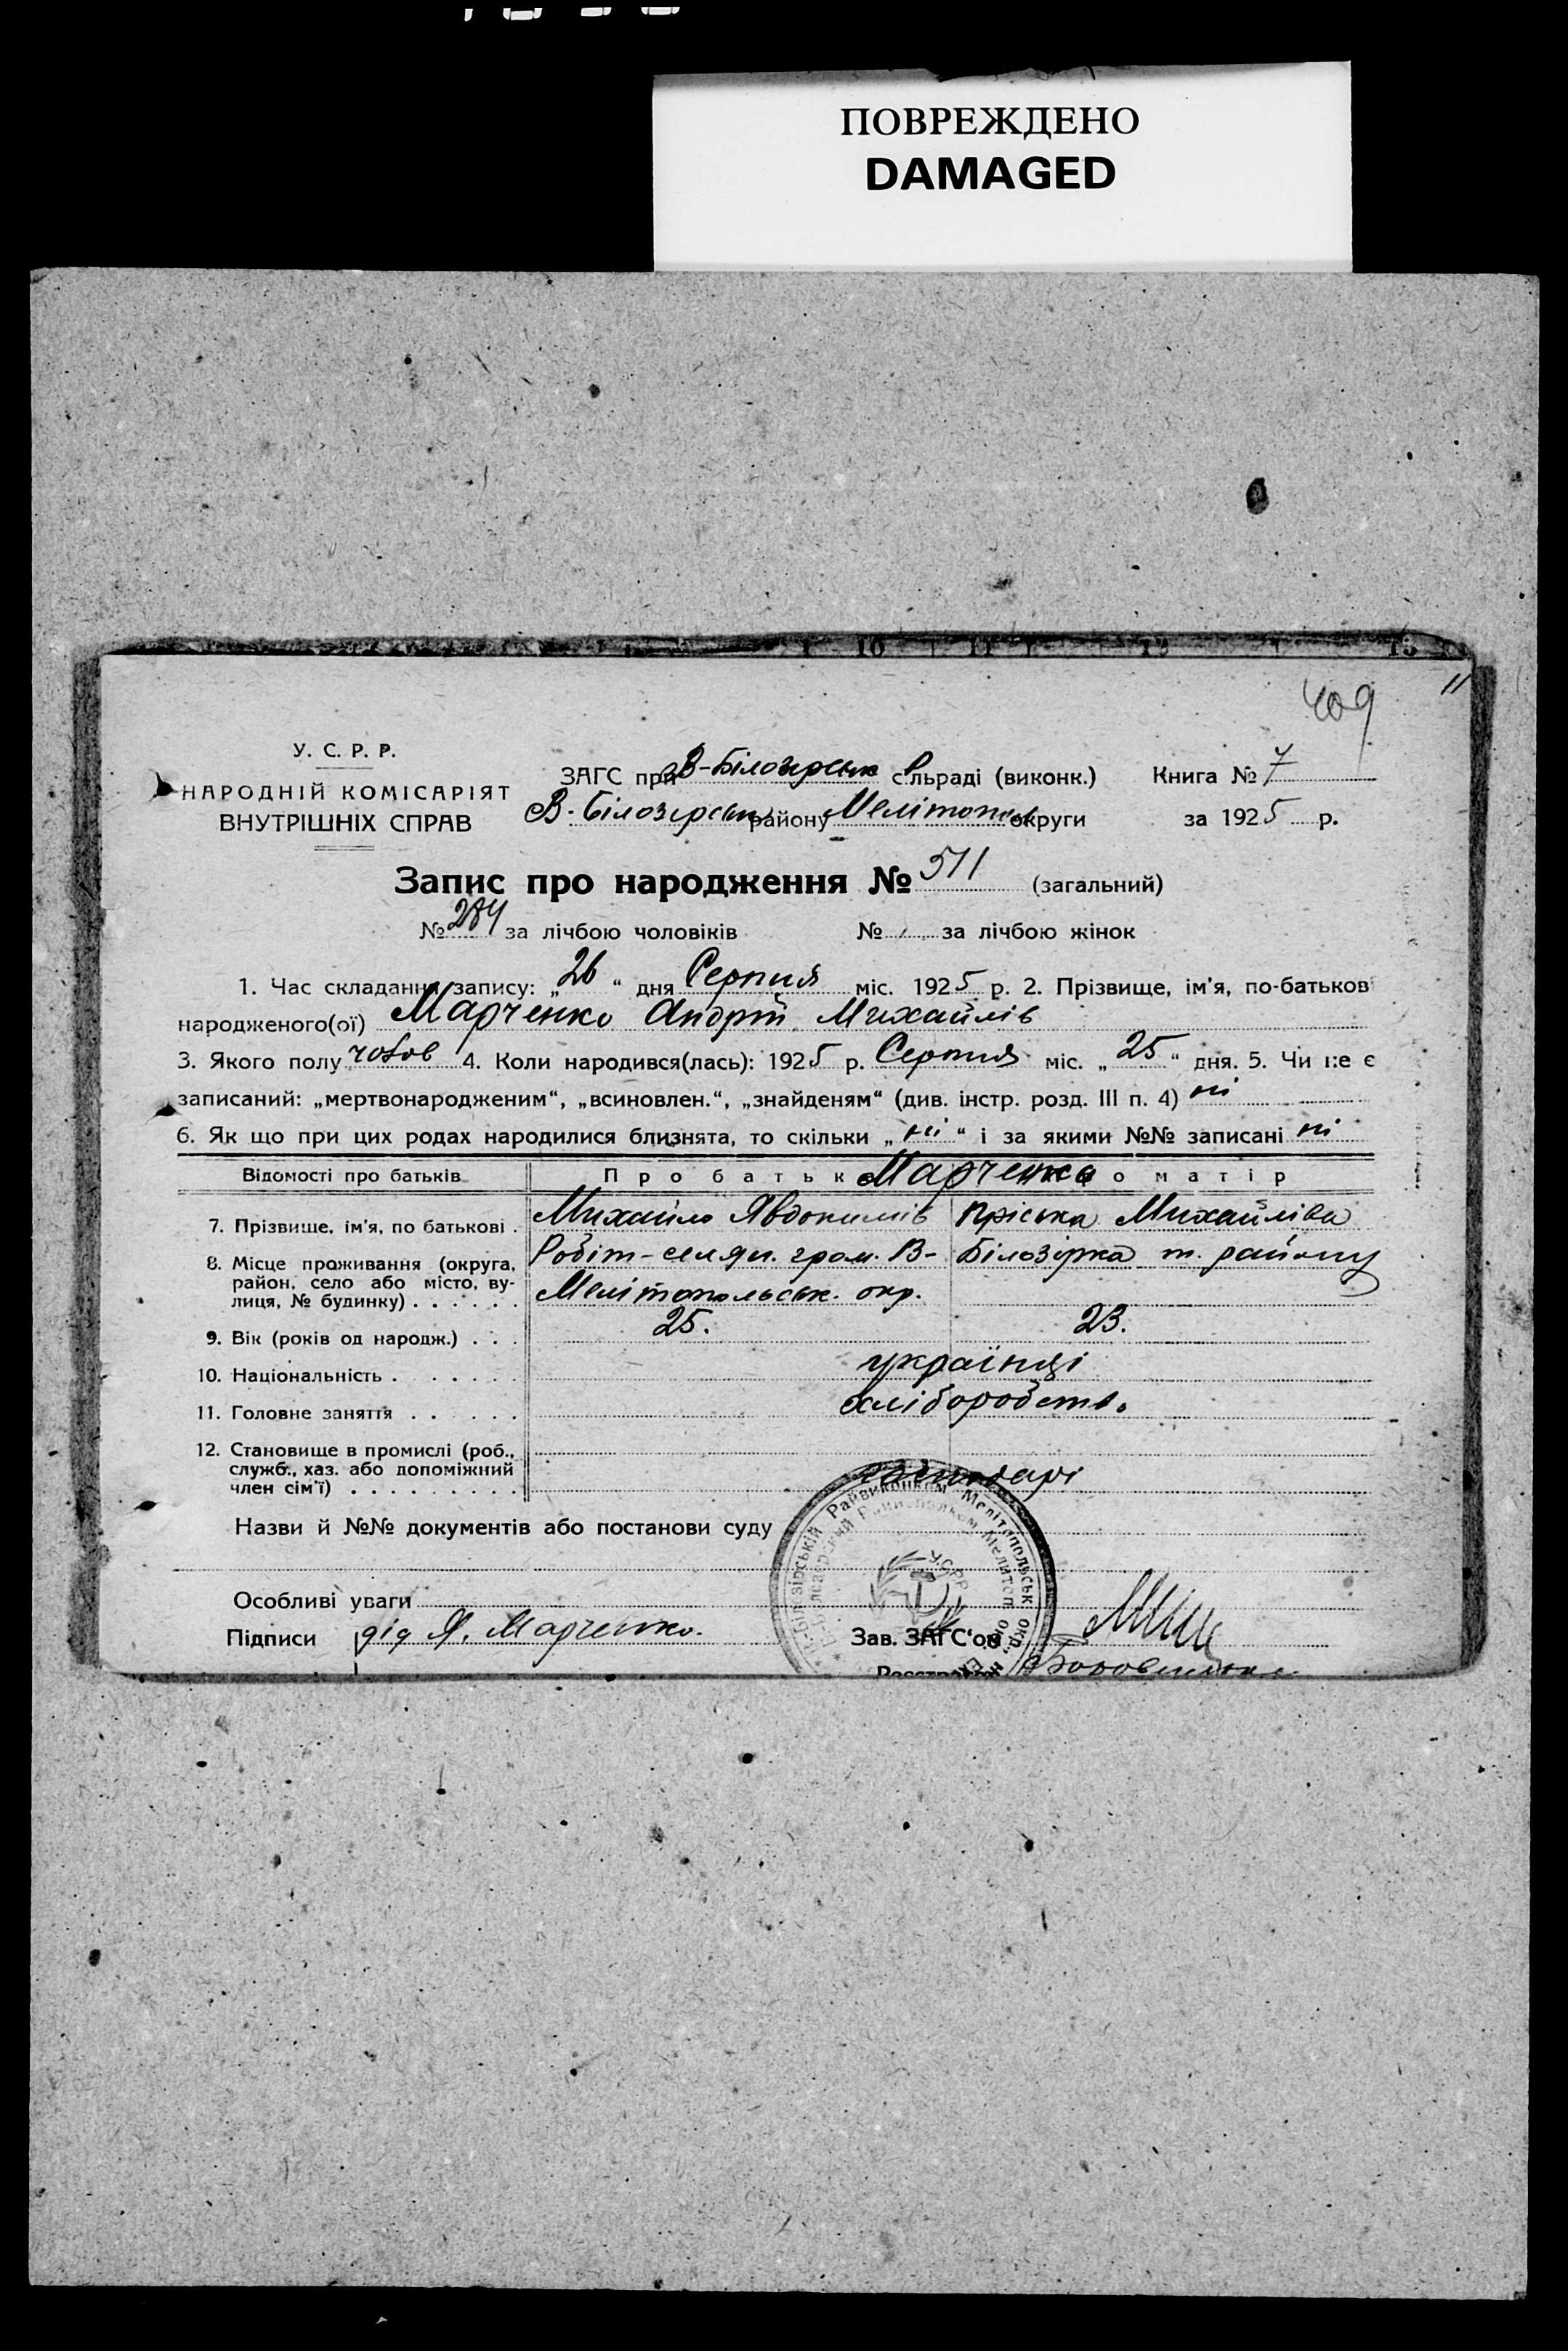 ПОВРЕЖДЕНО
DAMAGED
409
11
У. С. Р. Р.
НАРОДНІЙ КОМІСАРІЯТ
ВНУТРІШНІХ СПРАВ
ЗАГС при В-Білозирськ сільраді (виконк.) Книга № 7
В-Білозирськ району Мелітопол округи за 1925 р.
Запис про народження № 511 (загальний)
№ 284 за лічбою чоловіків № за лічбою жінок
1. Час складання запису: „26“ дня Серпня міс. 1925 р. 2. Прізвище, ім'я, по-батьков
народженого(ої) Марченко Андрій Михайлів
3. Якого полу чолов 4. Коли народився(лась): 1925 р. Серпня міс. „25“ дня. 5. Чи не є
записаний: „мертвонародженим“, „всиновлен.“, „знайденям“ (див. інстр. розд. III п. 4) ні
6. Як що при цих родах народилися близнята, то скільки „ні“ і за якими №№ записані ні
Відомості про батьків Про батьк Марченко о матір
7. Прізвище, ім'я, по батькові . Михайло Явдокимів Пріська Михайліва
8. Місце проживання (округа, район, село або місто, ву-
лиця, № будинку) . . . . . .
Робіт-селян. гром. В-Білозірка т. району
Мелітопольськ. окр.
9. Вік (років од народж.) . . . 25. 23.
10. Національність . . . . . . . українці
11. Головне заняття . . . . . . хліборобств.
12. Становище в промислі (роб.,
служб., хаз. або допоміжний
член сім'ї) . . . . . . . . . господарі
Назви й №№ документів або постанови суду
Особливі уваги
Підписи дід Я. Марченко. Зав. ЗАГС'ом
Білозірський Райвиконком Мелітопольськ окр.
У.С.Р.Р.